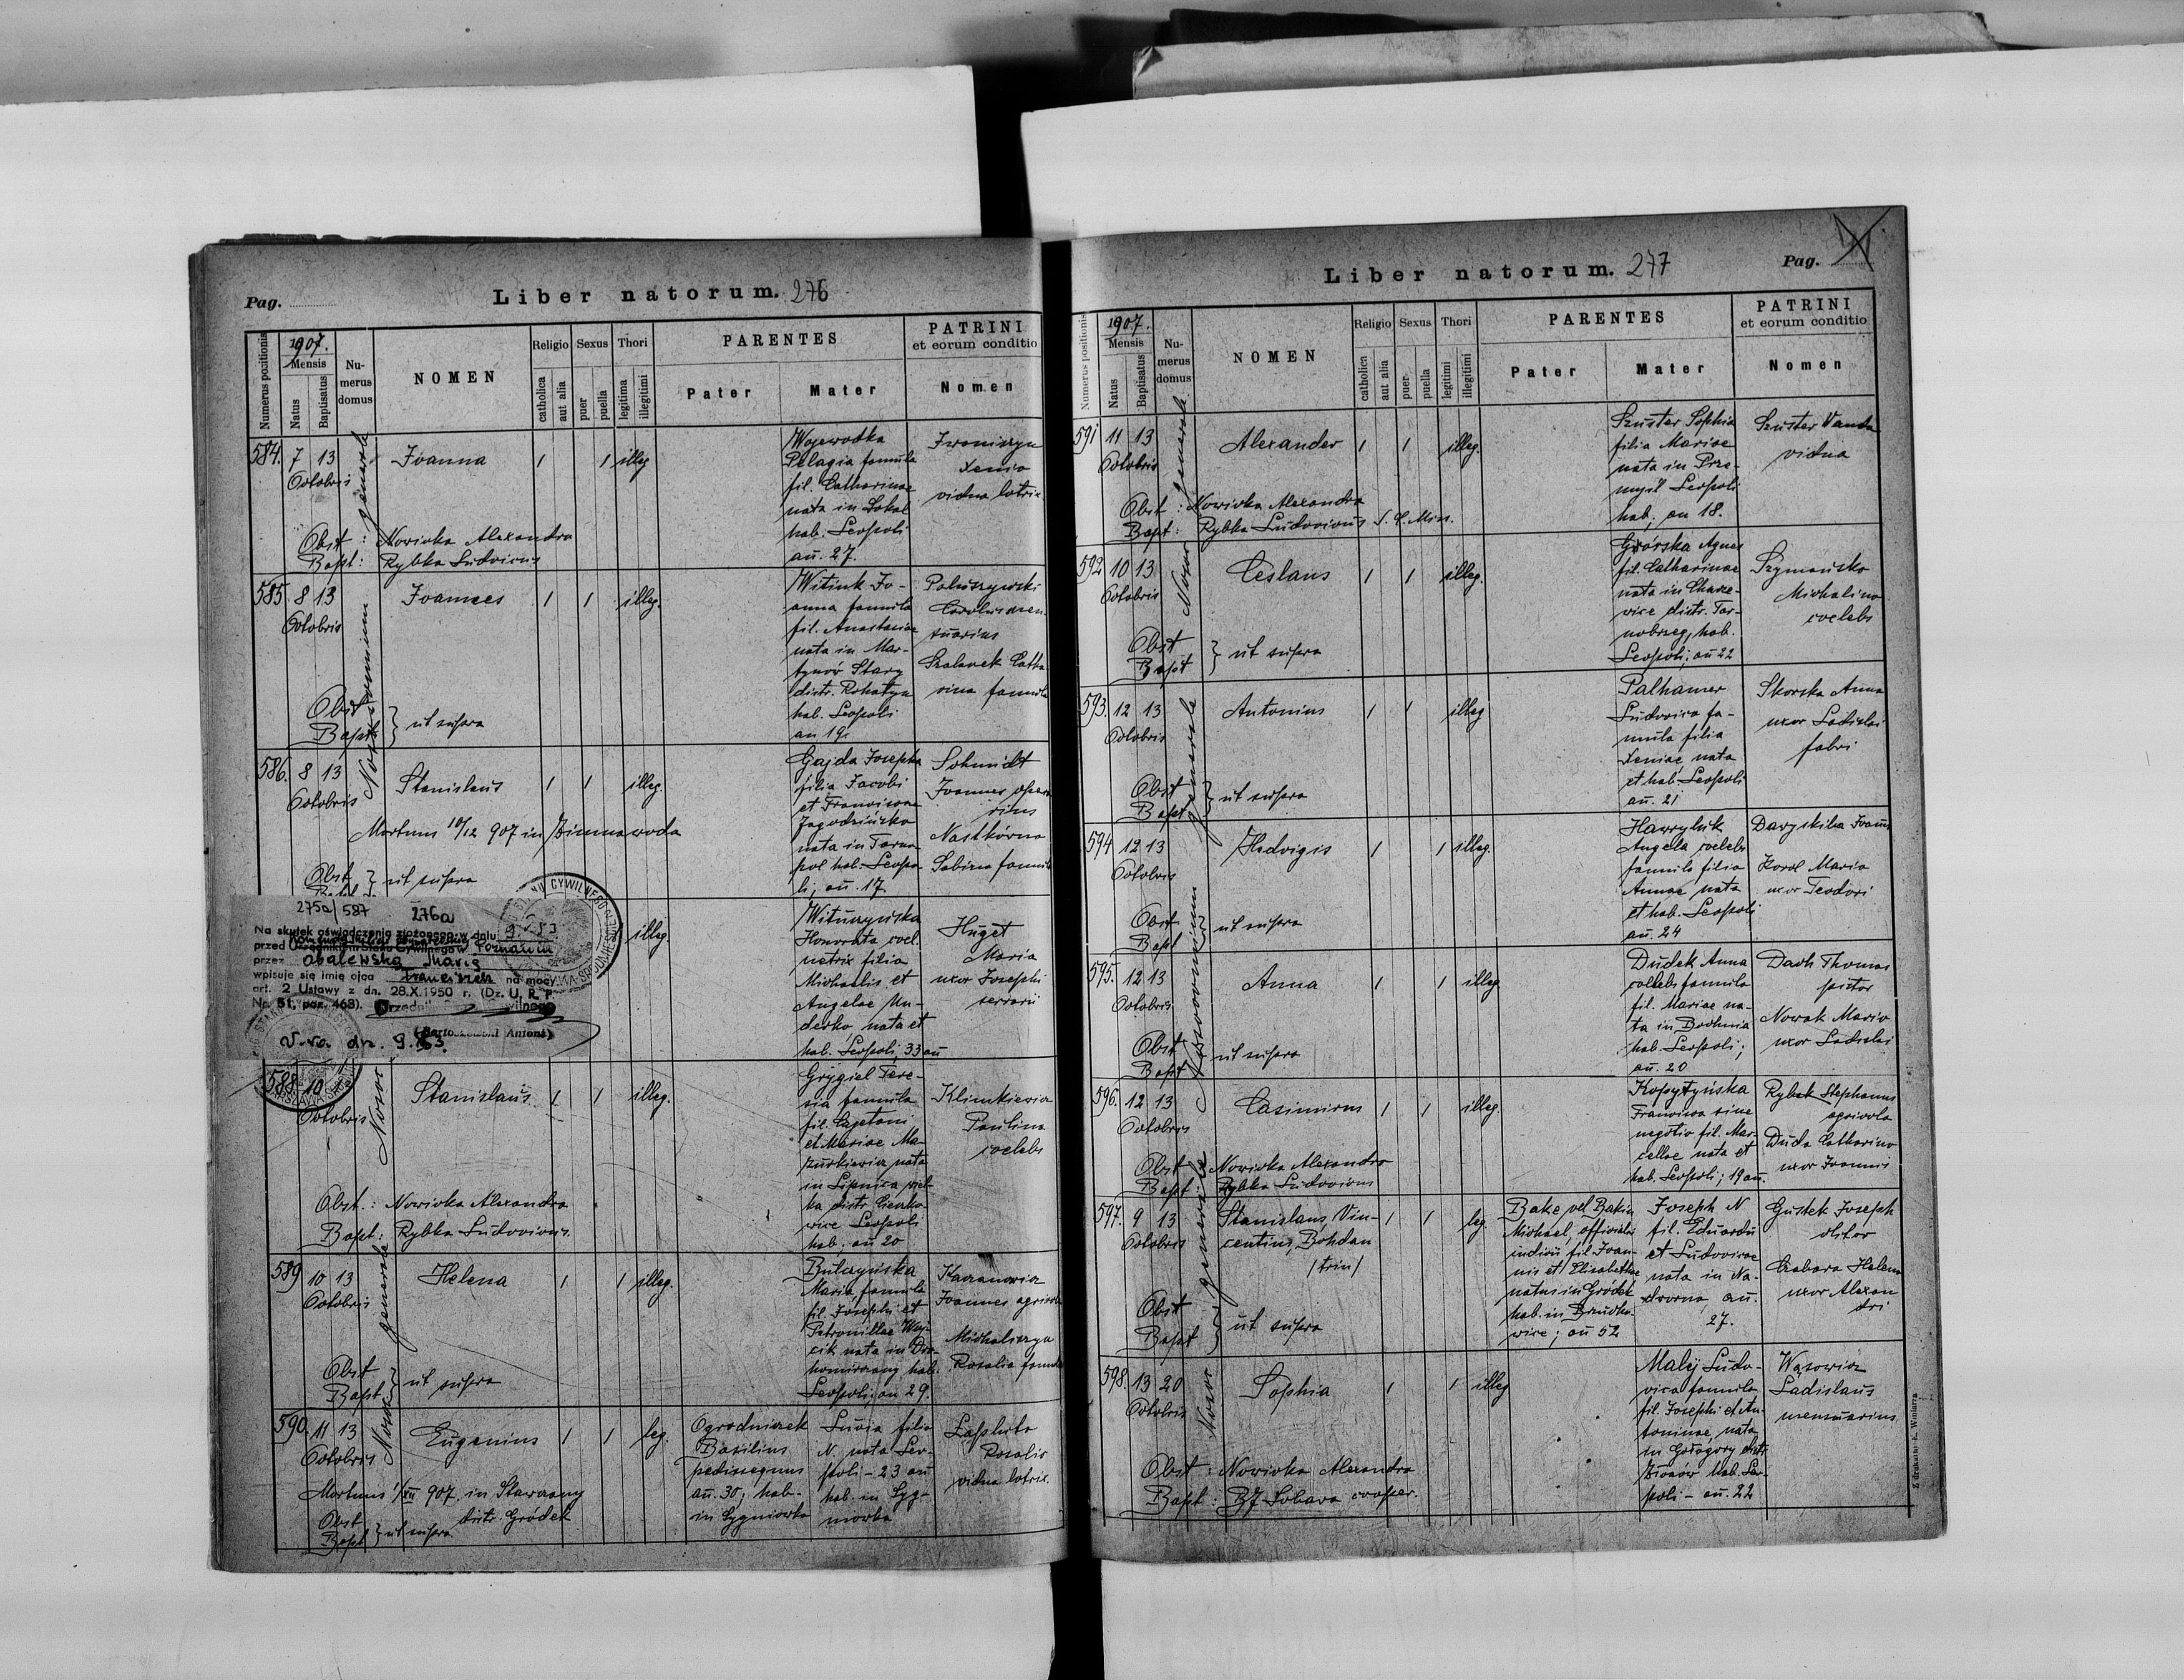 Pag.
Liber natorum. 276
Numerus positionis
1907.
Mensis
Natus
Baptisatus
Numerus domus
NOMEN
Religio
catholica
aut alia
Sexus
puer
puella
Thori
legitima
illegitimi
PARENTES
Pater
Mater
PATRINI
et eorum conditio
Nomen
584. 7 13
Octobris
Joanna
1 1 illeg
Wojewodka
Pelagia famula
fil. Catharinae
nata in Sokal
hab. Leopoli
an. 27.
Xenia
vidua lotrix
Obst: Nowicka Alexandra
Bapt: Rybka Ludovicus
Nosocomium generale
585. 8 13
Octobris
Joannes
1 1 illeg.
Witiuk Jo-
anna famula
fil. Anastasiae
nata in Mar-
tynów Stary
distr. Rohatyn
hab. Leopoli
an 19.
Carolus men-
suarius
Catha
rina famula
Obst
Bapt } ut supra
586. 8 13
Octobris
Stanislaus
1 1 illeg.
Mortuus 10/12 907 in Zimnawoda
Gajda Josepha
filia Jacobi
et Franciscae
Zagodzińska
nata in Tarno-
pol hab. Leopo-
li; an. 17
Schmidt
Joannes opera
rius
Sabina famula
Obst } ut supra
275a/587 276a
Na skutek oświadczenia złożonego w dniu 9.I.53
przed Urzędnikiem Stanu Cywilnego w Poznaniu
przez Obalewską Marię
wpisuje się imię ojca Franciszek na mocy
art. 2 Ustawy z dn. 28.X.1950 r. (Dz. U. R. P.
Nr. 51, poz. 468).
(Bartoszewski Antoni)
W-wa dn. 9.
illeg.
Wituszyńska
Honorata coel.
netrix filia
Michaelis et
Angelae Un-
derko, nata et
hab. Leopoli, 33 an
Huget
Maria
uxor Josephi
serrarii
588 10
Octobris
Stanislaus
1 1 illeg.
Grygiel Tere-
sia famula
fil. Cajetani
et Mariae Ma-
zurkiewicz nata
in Lipnica wiel-
ka distr.
Leopoli
hab; an 20
Klimkiewicz
Paulina
coelebs
Obst.: Nowicka Alexandra
Bapt: Rybka Ludovicus.
Nosoc. generale
589 10 13
Octobris
Helena
1 1 illeg.
Bulczyńska
Maria, famula
fil. Josephi et
Petronillae Woj-
cik nata in Dro-
homirczany hab.
Leopoli; an 29.
Kazanowicz
Joannes agricola
Michalszyn
Rosalia famula
Obst
Bapt. } ut supra
590. 11 13
Octobris
Eugenius
1 1 leg.
Ogrodniczek
Basilius
pedissequus
an. 30; hab-
in Sygniowka
Lucia filia
N. nata Leo-
poli - 23 an
hab. in Syg-
niowka
Rosalia
vidua lotrix.
Mortuus 1/XII 907. in Stawczany
distr. Gródek
Obst
Bapt } ut supra
Liber natorum. 277
Pag.
Numerus positionis
1907.
Mensis
Natus
Baptisatus
Numerus domus
NOMEN
Religio
catholica
aut alia
Sexus
puer
puella
Thori
legitimi
illegitimi
PARENTES
Pater
Mater
PATRINI
et eorum conditio
Nomen
591 11 13
Octobris
Alexander
1 1 illeg.
Szuster Sophia
filia Mariae
nata in Prze-
myśl Leopoli
hab; an 18.
Szuster Vanda
vidua
Obst: Nowicka Alexandra
Bapt: Rybka Ludovicus S. C. Miss.
Nosoc. generale
592 10 13
Octobris
Ceslaus
1 1 illeg.
Górska Agnes
fil. Catharinae
nata in Charze-
wice distr. Tar-
nobrzeg, hab.
Leopoli; an 22
Szymańska
Michalina
coelebs
Obst
Bapt } ut supra
593. 12 13
Octobris
Antonius
1 1 illeg
Palhamer
Ludovica fa-
mula filia
Xeniae, nata
et hab. Leopoli
an. 21
Skorska Anna
uxor Ladislai
fabri
Obst
Bapt } ut supra
Nosocomium generale
594 12 13
Octobris
Hedvigis
1 1 illeg.
Hawryluk
Angela coelebs
famula filia
Annae nata
et hab. Leopoli
an. 24
Koral Maria
uxor Teodori
Obst
Bapt } ut supra
595. 12 13
Octobris
Anna
1 1 illeg
Dudek Anna
coelebs famula
fil. Mariae na-
ta in Bochnia
hab. Leopoli;
an. 20
Dach Thomas
pistor
Nowak Maria
uxor Ladislai
Obst
Bapt ut supra
596. 12 13
Octobris
Casimirus
1 1 illeg.
Kopytyńska
Francisca sine
negotio fil. Mar-
cellae nata et
hab. Leopoli; 19 an.
Rybak Stephanus
agricola
Duda Catharina
uxor Joannis
Obst Nowicka Alexandra
Bapt Rybka Ludovicus
Nosoc. generale
597. 9 13
Octobris
Stanislaus, Vin-
centius, Bohdan
/trin/
1 1 leg.
Bake vel Bakin
Michael, officialis
judicii fil. Joan-
nis et Elisabethae
natus in Gródek
hab. in Brzucho-
wice; an 52
Joseph N
fil. Eduardi
et Ludovicae
nata in Na-
dworna, an.
27.
Gustek Joseph
olitor
Helena
uxor Alexan
dri
Obst
Bapt } ut supra
598. 13 20
Octobris
Sophia
1 1 illeg
Malij Ludo-
vica famula,
fil. Josephi et An-
toninae, nata
in Gołogory distr.
Złoczów hab. Leo-
poli - an. 22
Wąsowicz
Ladislaus
mensuarius
Obst: Nowicka Alexandra
Bapt: cooper.
Z drukarni E. Winiarza